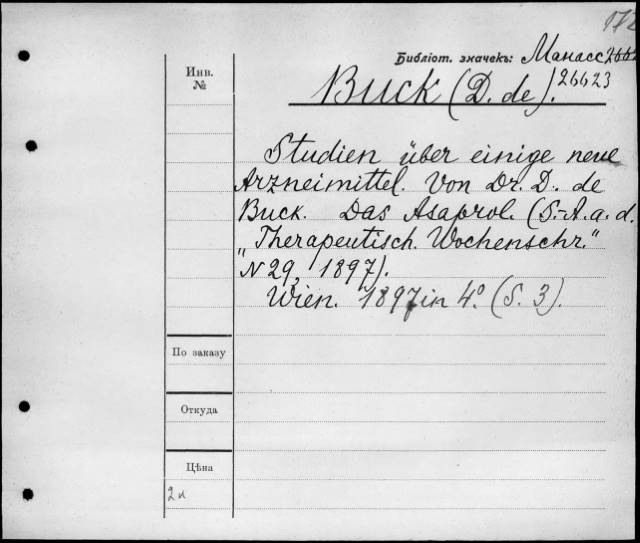 Инв.
№
Библіот. значекъ: Манасс
26623
Buck (D. de).
Studien über einige neue
Arzneimittel. Von Dr. D. de
Buck. Das Asaprol. (S.-A. a. d.
„Therapeutisch. Wochenschr."
N 29, 1897).
Wien. 1897 in 4º. (S. 3).
По заказу
Откуда
Цѣна